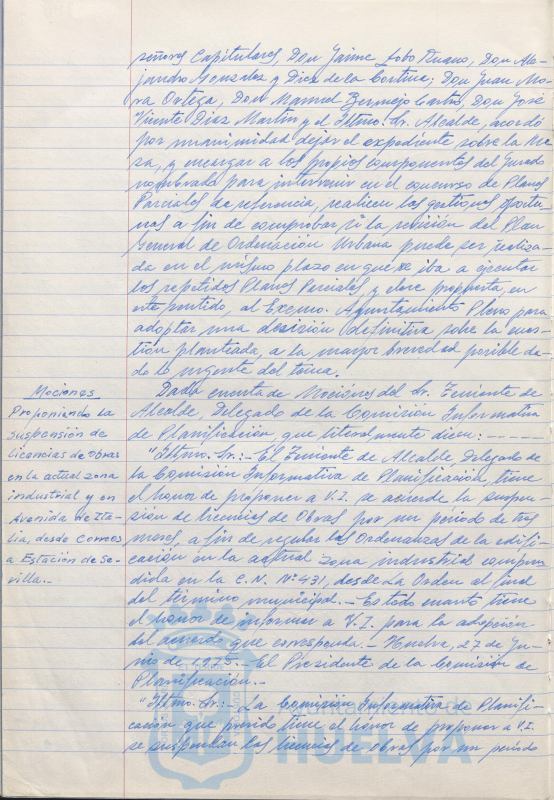 señores Capitulares, Don Jaime Lobo Ruano, Don Ale-
jandro González y Diez de la Cortina; Don Juan Mo-
ra Ortega, Don Manuel Bermejo Castos, Don José
Vicente Díaz Martín y el Iltmo. Sr. Alcalde, acordó
por unanimidad dejar el expediente sobre la Me-
sa, y encargar a los propios componentes del Jurado
nombrado para intervenir en el concurso de Planes
Parciales de referencia, realicen las gestiones oportu-
nas a fin de comprobar si la revisión del Plan
General de Ordenación Urbana puede ser realiza-
da en el mismo plazo en que se iba a ejecutar
los repetidos Planes Parciales y eleve propuesta, en
este sentido, al Excmo. Ayuntamiento Pleno para
adoptar una decisión definitiva sobre la cues-
tión planteada, a la mayor brevedad posible da-
do lo urgente del tema.
Mociones
Proponiendo la
suspensión de
licencias de obras
en la actual zona
industrial y en
Avenida de Ita-
lia, desde Correos
a Estación de Se-
villa.-
Dada cuenta de Mociones del Sr. Teniente de
Alcalde, Delegado de la Comisión Informativa
de Planificación, que literalmente dicen: - - - - -
"Iltmo. Sr.:- El Teniente de Alcalde, Delegado de
la Comisión Informativa de Planificación, tiene
el honor de proponer a V.I. se acuerde la suspen-
sión de licencias de Obras por un período de tres
meses, a fin de regular las Ordenanzas de la edifi-
cación en la actual zona industrial compren-
dida en la C.N. Nº 431, desde La Orden al final
del término municipal.- Es todo cuanto tiene
el honor de informar a V.I. para la adopción
del acuerdo que corresponda.- Huelva, 27 de Ju-
nio de 1.975.- El Presidente de la Comisión de
Planificación.-
"Iltmo. Sr.:- La Comisión Informativa de Planifi-
cación que presido tiene el honor de proponer a V.I.
se suspendan las licencias de obras por un período
HUELVA